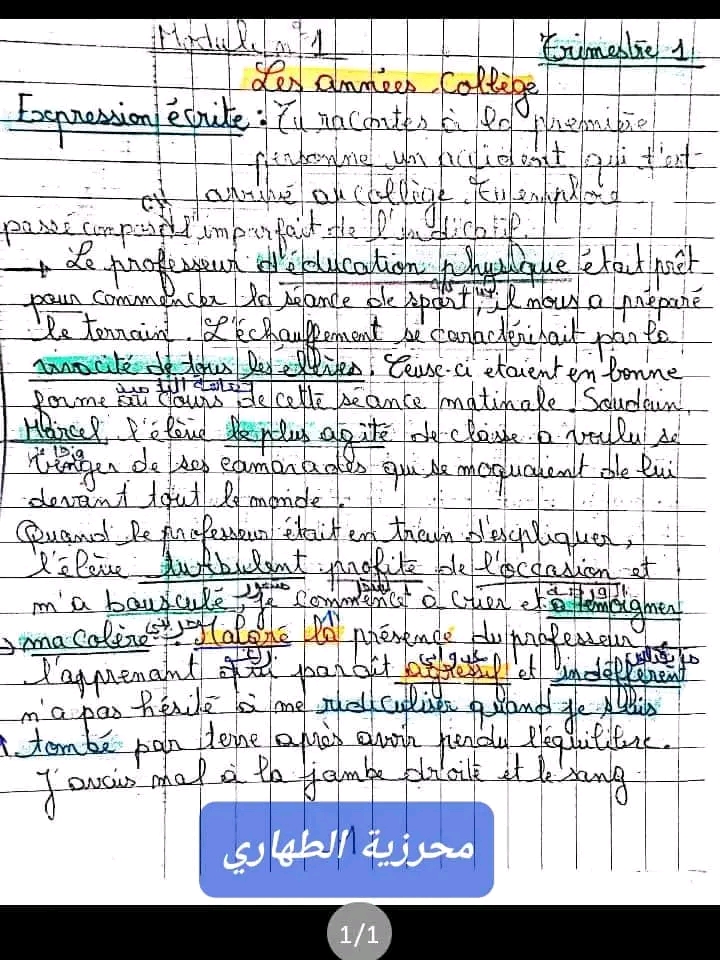 Module n° 1
Trimestre 1
Les années Collège
Expression écrite : Tu racontes à la première
personne un accident qui t'est
arrivé au collège. Tu emploies
passé composé l'imparfait de l'indicatif.
→ Le professeur d'éducation physique était prêt
pour commencer la séance de sport, il nous a préparé
le terrain. L'échauffement se caractérisait par la
de tous les élèves. Ceuse-ci etaient en bonne
forme au cours de cette séance matinale. Soudain,
Marcel l'élève le plus agité de classe a voulu se
venger de ses camarades qui se moquaient de lui
devant tout le monde.
Quand le professeur était en train d'escpliquer,
l'élève turbulent profite de l'occasion et
m'a bousculé, je commencé à crier et à temoigner
ma colère. Malgré la présence du professeur
l'apprenant qui paraît agressif et indefférent
n'a pas hésité à me ridiculiser quand je suis
tombé par terre après avoir perdu l'équilibre.
J'avais mal à la jambe droite et le sang
محرزية الطهاري
1/1